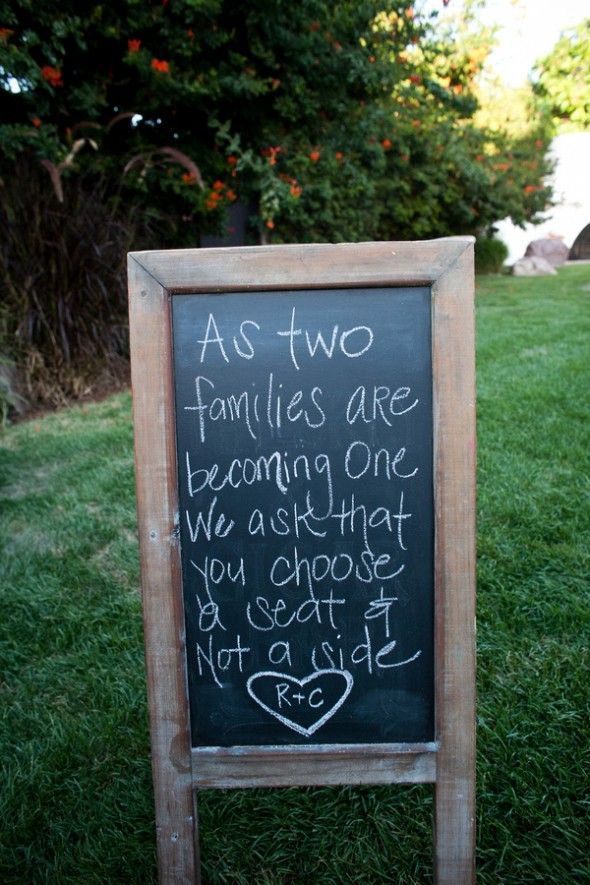 As two
families are
becoming One
We ask that
you choose
a seat &
Not a side
R+C